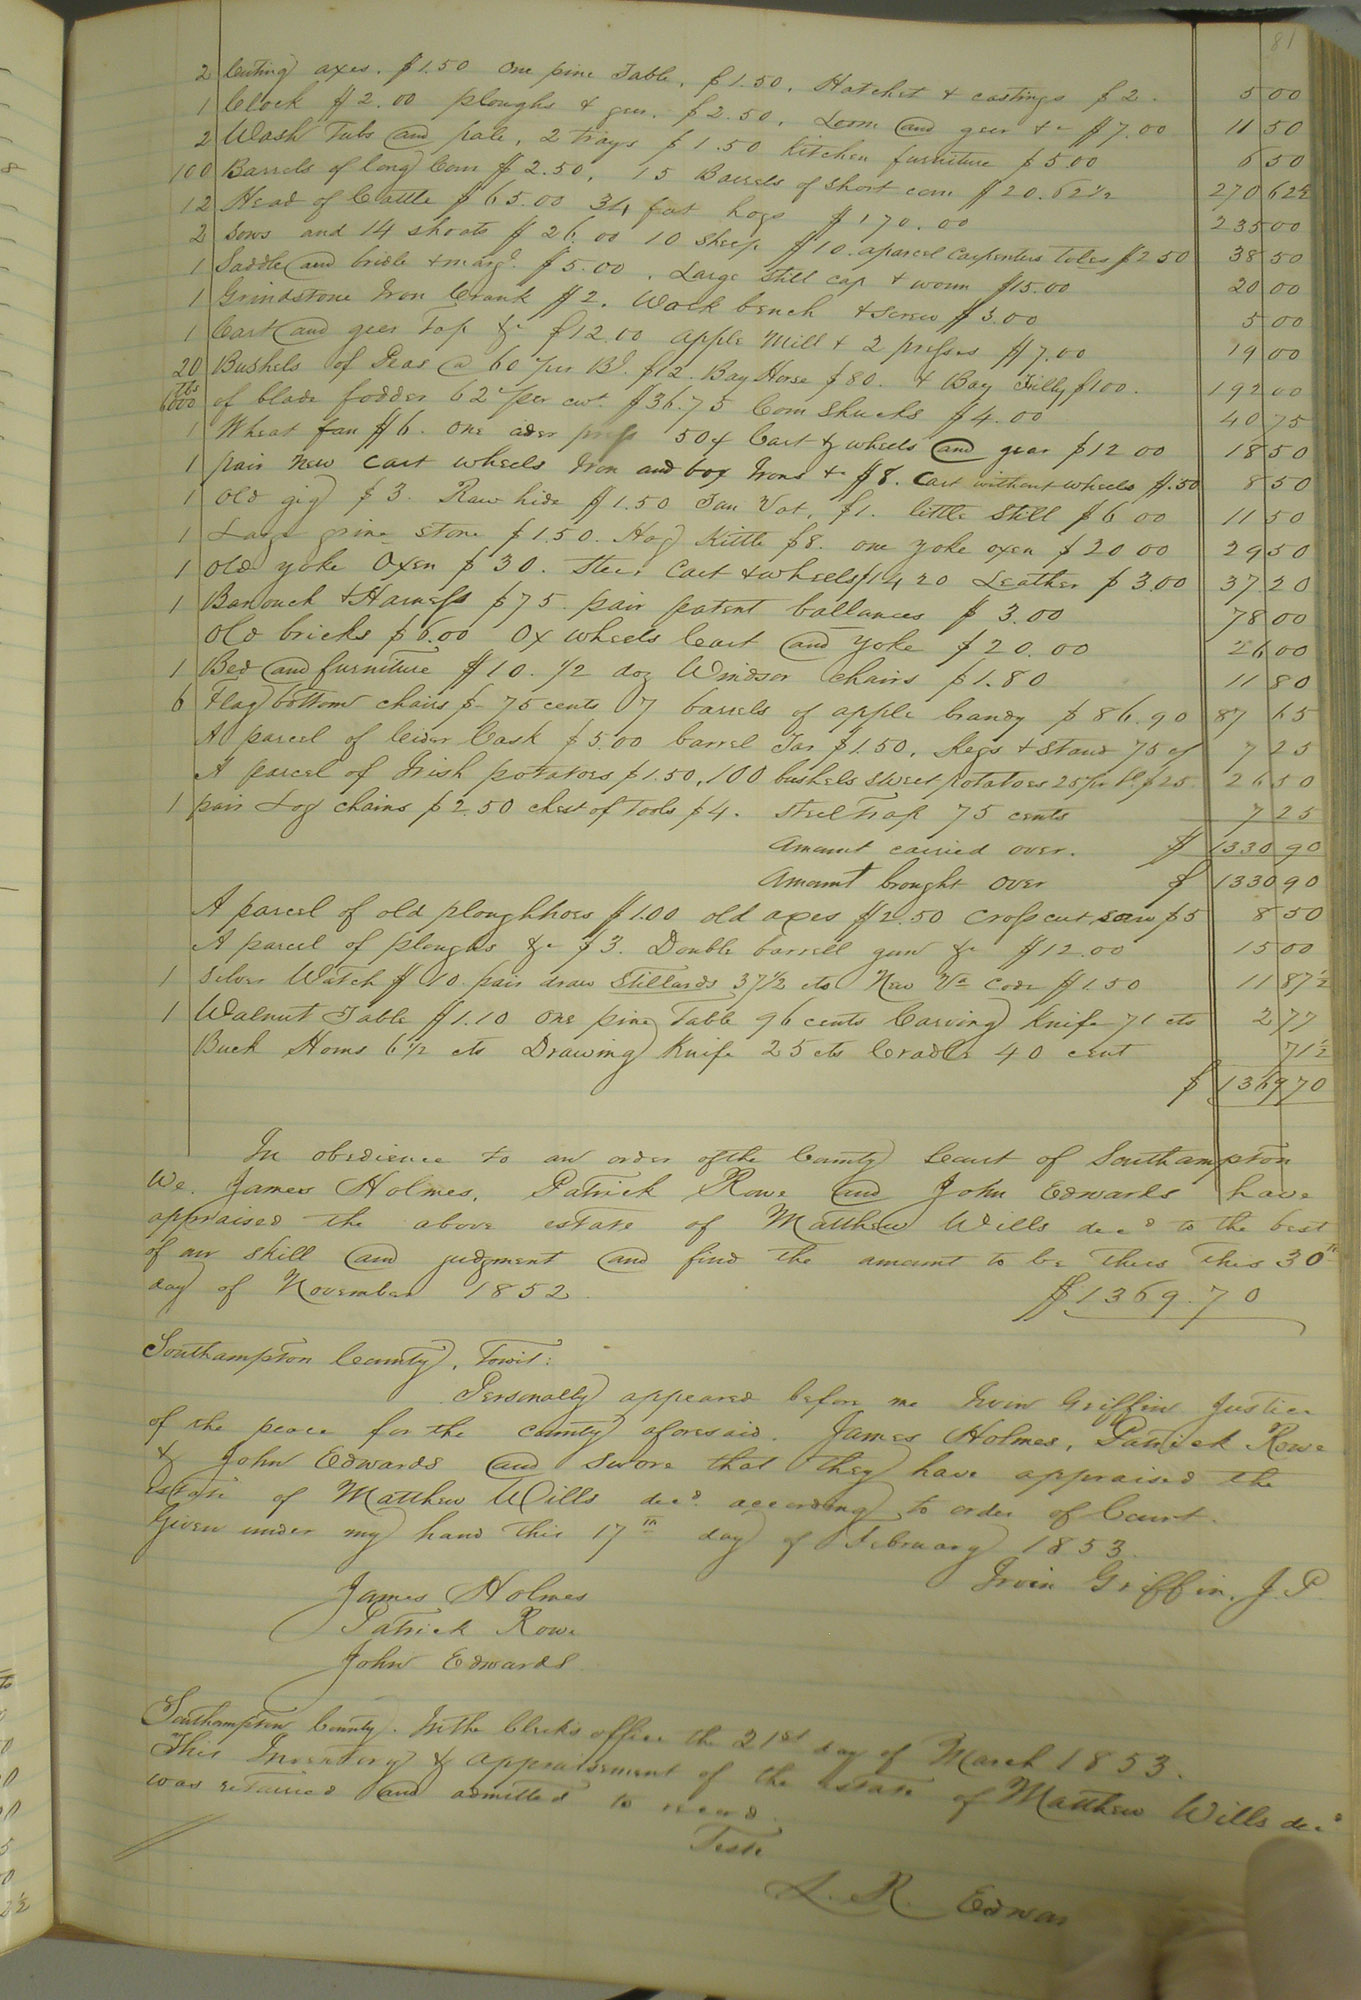 81
2 Cutting axes. $1.50 One pine Table, $1.50, Hatchet & castings $2. 5 00
1 Clock $2.00 ploughs & geer. $2.50, Loom and geer &c $7.00 11 50
2 Wash Tubs and pale, 2 trays $1.50 Kitchen furniture $5.00 6 50
100 Barrels of long Corn $2.50, 15 Barrels of short corn $20.62½ 270 62½
12 Head of Cattle $65.00 34 fat hogs $170.00 235 00
2 Sows and 14 shoats $26.00 10 Sheep $10. a parcel Carpenters Toles $2 50 38 50
1 Saddle and bridle & marg. $5.00. Large Still cap & worm $15.00 20 00
1 Grindstone Iron Crank $2. Work bench & screw $3.00 5 00
1 Cart and geer Top &c $12.00 apple Mill & 2 presses $7.00 19 00
20 Bushels of Peas @ 60c per Bl. $12. Bay Horse $80. & Bay Filly $100. 192 00
6000 lbs of blade fodder 62c per cwt. $36.75 Corn Shucks $4.00 40 75
1 Wheat fan $6. One press 50c Cart & wheels and gear $12 00 18 50
1 pair new cart wheels Iron and box Irons &c $8. Cart without wheels $.50 8 50
1 old gig $3. Raw hide $1.50 Tan Vat, $1. little Still $6 00 11 50
1 Large grine stone $1.50. Hog Kittle $8. one yoke oxen $20 00 29 50
1 old yoke Oxen $30. Steer Cart & wheels $14 20 Leather $3.00 37 20
1 Barouch & Harness $75. pair patent ballances $3.00 78 00
Old bricks $6.00 Ox wheels Cart and yoke $20.00 26 00
1 Bed and furniture $10. 1/2 doz Windsor Chairs $1.80 11 80
6 Flag bottom chairs $- 75 cents 7 barrels of apple brandy $86.90 87 65
A parcel of Cider Cask $5.00 barrel Tar $1.50, Kegs & Stand 75 cts 7 25
A parcel of Irish potatoes $1.50, 100 bushels sweet potatoes 25 pr Bl. $25. 26 50
1 pair Log chains $2.50 chest of Tools $4. Steel Trap 75 cents 7 25
Amount carried over. $ 1330 90
Amount brought over $ 1330 90
A parcel of old ploughhoes $1.00 old axes $2.50 Cross cut saw $5 8 50
A parcel of ploughs &c $3. Double barrell gun &c $12.00 15 00
1 Silver Watch $10. pair draw Stillards 37½ cts New Va Code $1.50 11 87½
1 Walnut Table $1.10 one pine Table 96 cents Carving Knife 71 cts 2 77
Buck Horns 6½ cts Drawing Knife 25 cts Cradle 40 cent 71½
$ 1369 70
In obedience to an order of the County Court of Southampton
We. James Holmes, Patrick Rowe and John Edwards have
appraised the above estate of Matthew Wills decd to the best
of our skill and judgment and find the amount to be thus this 30th
day of November 1852. $1369.70
Southampton County, Towit:
Personally appeared before me Irvin Griffin Justice
of the peace for the county aforesaid. James Holmes, Patrick Rowe
& John Edwards and swore that they have appraised the
estate of Matthew Wills decd. according to order of Court.
Given under my hand this 17th day of February 1853.
Irvin Griffin, J.P.
James Holmes
Patrick Rowe
John Edwards
Southampton County. In the Clerk's office the 21st day of March 1853.
This Inventory & appraisement of the estate of Matthew Wills decd
was retained and admitted to record.
Teste
L. R. Edwar